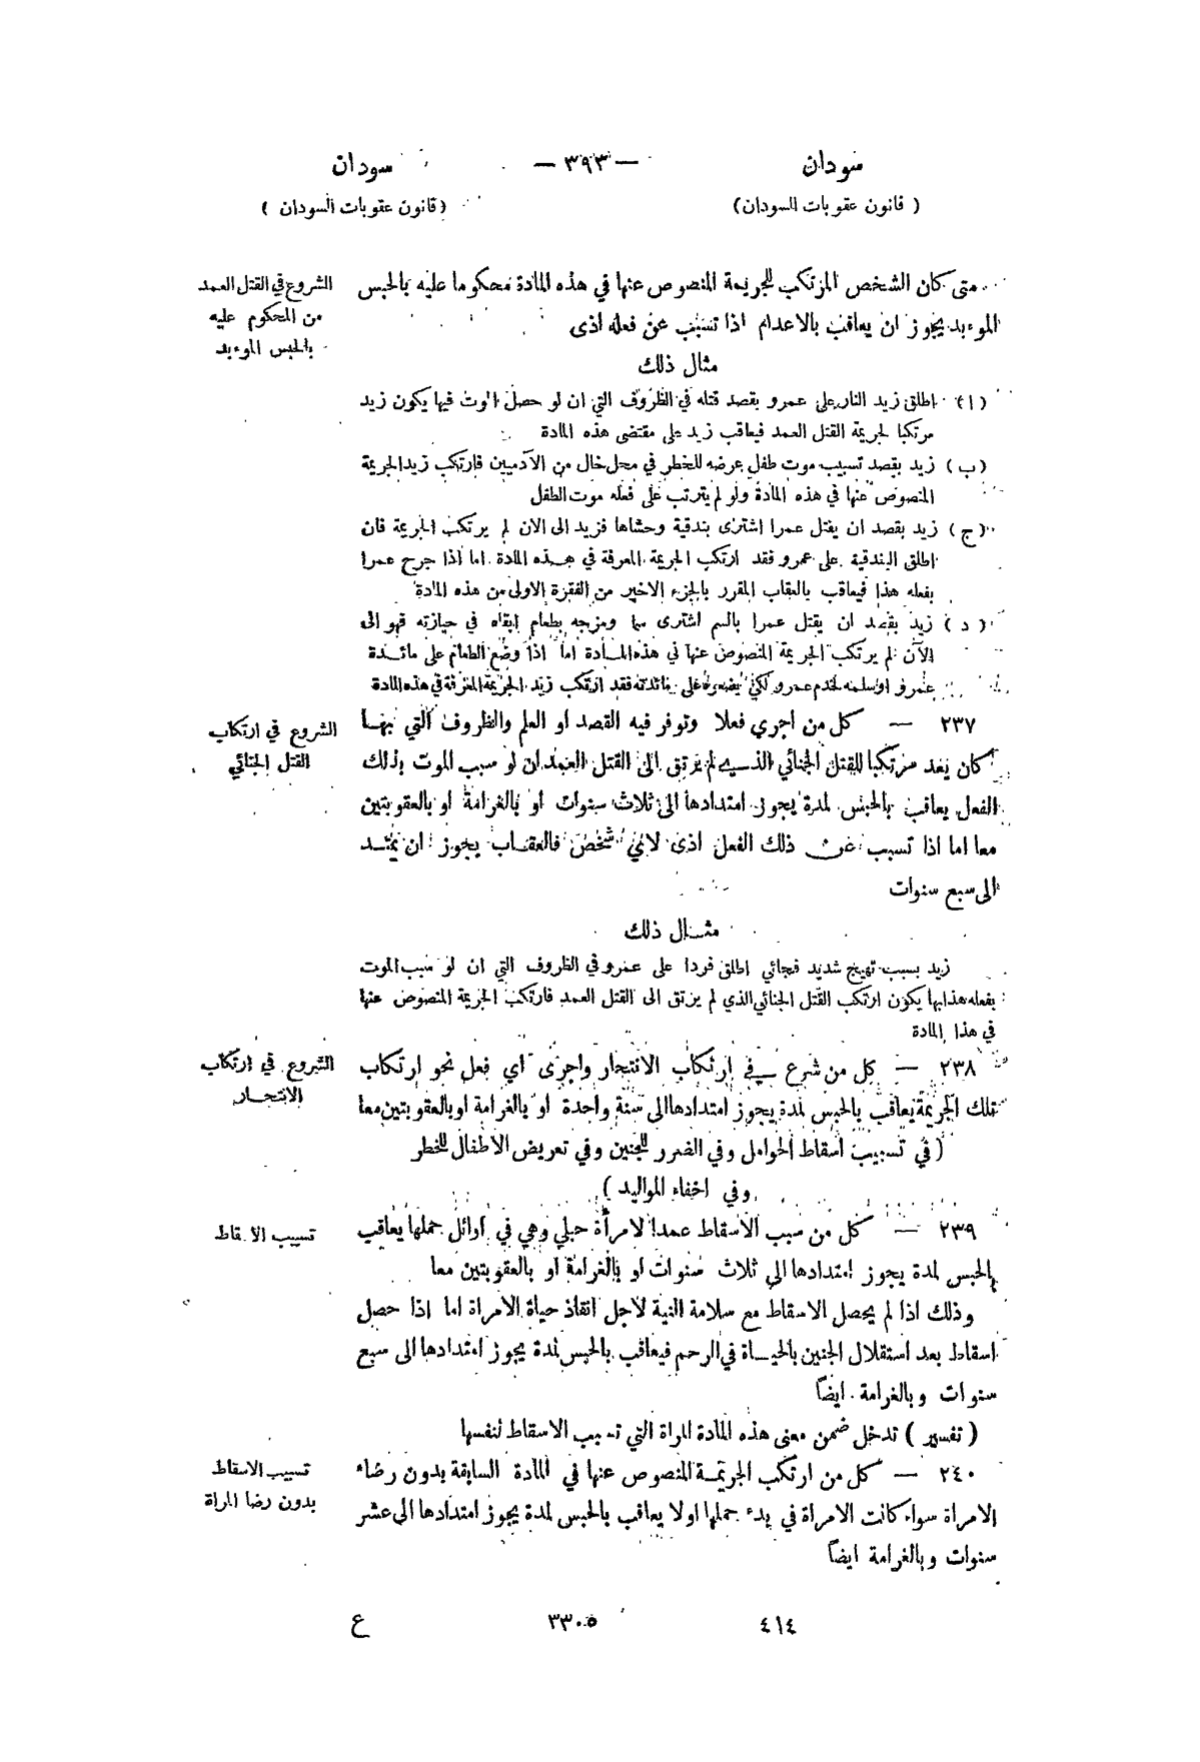 سودان — ٣٩٣ — سودان
( قانون عقوبات السودان) (قانون عقوبات السودان )
متى كان الشخص المرتكب للجريمة المنصوص عنها في هذه المادة محكوما عليه بالحبس
الموءبد يجوز ان يعاقب بالاعدام اذا تسبب عن فعله اذى
الشروع في القتل العمد
من المحكوم عليه
بالحبس الموءبد
مثال ذلك
(ا) اطلق زيد النار على عمرو بقصد قتله في الظروف التي ان لو حصل الموت فيها يكون زيد
مرتكبا لجريمة القتل العمد فيعاقب زيد على مقتضى هذه المادة
(ب) زيد بقصد تسبيب موت طفل عرضه للخطر في محل خال من الآدميين فارتكب زيد الجريمة
المنصوص عنها في هذه المادة ولو لم يترتب على فعله موت الطفل
(ج) زيد بقصد ان يقتل عمرا اشترى بندقية وحشاها فزيد الى الان لم يرتكب الجريمة فان
اطلق البندقية على عمرو فقد ارتكب الجريمة المعرفة في هذه المادة اما اذا جرح عمرا
بفعله هذا فيعاقب بالعقاب المقرر بالجزء الاخير من الفقرة الاولى من هذه المادة
( د ) زيد بقصد ان يقتل عمرا بالسم اشترى سما ومزجه بطعام ابقاه في حيازته فهو الى
الآن لم يرتكب الجريمة المنصوص عنها في هذه المادة اما اذا وضع الطعام على مائدة
عمرو او سلمه لخدم عمرو لكي يضعوه على مائدته فقد ارتكب زيد الجريمة المعرفة في هذه المادة
٢٣٧ — كل من اجرى فعلا وتوفر فيه القصد او العلم والظروف التي بها
كان يعد مرتكبا للقتل الجنائي الذي لم يرتق الى القتل العمد ان لو سبب الموت بذلك
الفعل يعاقب بالحبس لمدة يجوز امتدادها الى ثلاث سنوات او بالغرامة او بالعقوبتين
معا اما اذا تسبب عن ذلك الفعل اذى لاي شخص فالعقاب يجوز ان يمتد
الى سبع سنوات
الشروع في ارتكاب
القتل الجنائي
مثال ذلك
زيد بسبب تهيج شديد فجائي اطلق فردا على عمرو في الظروف التي ان لو سبب الموت
بفعله هذا بها يكون ارتكب القتل الجنائي الذي لم يرتق الى القتل العمد فارتكب الجريمة المنصوص عنها
في هذا المادة
٢٣٨ — كل من شرع في ارتكاب الانتحار واجرى اي فعل نحو ارتكاب
تلك الجريمة يعاقب بالحبس لمدة يجوز امتدادها الى سنة واحدة او بالغرامة او بالعقوبتين معا
الشروع في ارتكاب
الانتحار
( في تسبيب اسقاط الحوامل وفي الضرر للجنين وفي تعريض الاطفال للخطر
وفي اخفاء المواليد )
٢٣٩ — كل من سبب الاسقاط عمدا لامرأة حبلى وهي في اوائل حملها يعاقب
بالحبس لمدة يجوز امتدادها الى ثلاث سنوات او بالغرامة او بالعقوبتين معا
تسبيب الاسقاط
وذلك اذا لم يحصل الاسقاط مع سلامة النية لاجل انقاذ حياة الامراة اما اذا حصل
اسقاط بعد استقلال الجنين بالحياة في الرحم فيعاقب بالحبس لمدة يجوز امتدادها الى سبع
سنوات وبالغرامة ايضاً
( تفسير ) تدخل ضمن معنى هذه المادة المراة التي تسبب الاسقاط لنفسها
٢٤٠ — كل من ارتكب الجريمة المنصوص عنها في المادة السابقة بدون رضاء
الامراة سواء كانت الامراة في بدء حملها اولا يعاقب بالحبس لمدة يجوز امتدادها الى عشر
سنوات وبالغرامة ايضاً
تسبيب الاسقاط
بدون رضا المراة
٤١٤ ٣٣٠٥ ع